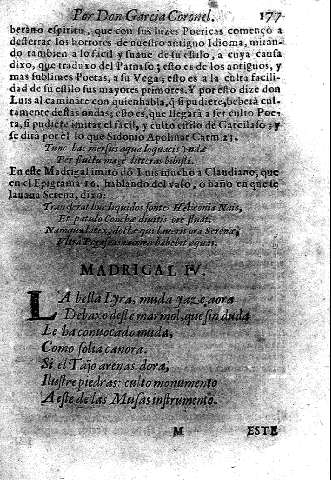 Por Don Garcia Coronel. 177
berano espiritu, que con sus luzes Poeticas començò a
desterrar los horrores de nuestro antiguo Idioma, miran-
do tambien a lo facil y suaue de su estilo, a cuya causa
dixo, que traduxo del Parnaso; esto es de los antiguos, y
mas sublimes Poetas, a su Vega; esto es a la culta facili-
dad de su estilo sus mayores primores. Y por esto dize don
Luis al caminante con quien habla, q̃ si pudiere, beberà cul-
tamente destas ondas; esto es, que llegarà a ser culto Poe-
ta, si pudiere imitar el facil, y culto estilo de Garcilaso; y
se dirà por el lo que Sidonio Apolinar Carm. 23.
Tunc hac mersus aque loquacis Vndæ
Per fluctu mage litteras bibisti.
En este Madrigal imitò dõ Luis mucho a Claudiano, que
en el Epigrama 16. hablando del vaso, o baño en que se
lauaua Serena, dixo:
Transferat huc liquidos fontes Heliconia Nais,
Et patulo Conchæ diuitis orbe fluat.
Namque latex, doctæ qui lauerit ora Serenæ,
Vltra Pegaseas numen habebit aquas.
MADRIGAL IV.
LA bella Lyra, muda yaze aora
Debaxo deste marmol, que sin duda
Le ha conuocado muda,
Como solia canora.
Si el Tajo arenas dora,
Ilustre piedras: culto monumento
A este de las Musas instrumento.
M ESTE